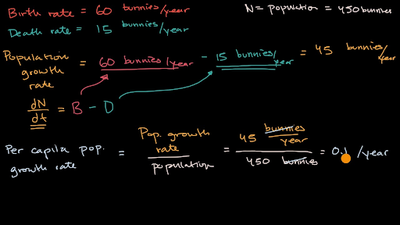 Birth rate = 60 bunnies/year
N = population = 450 bunnies
Death rate = 15 bunnies/year
Population growth rate = 60 bunnies/year - 15 bunnies/year = 45 bunnies/year
dN/dt = B - D
Per capita pop. growth rate = Pop. growth rate / population = 45 bunnies/year / 450 bunnies = 0.1 /year